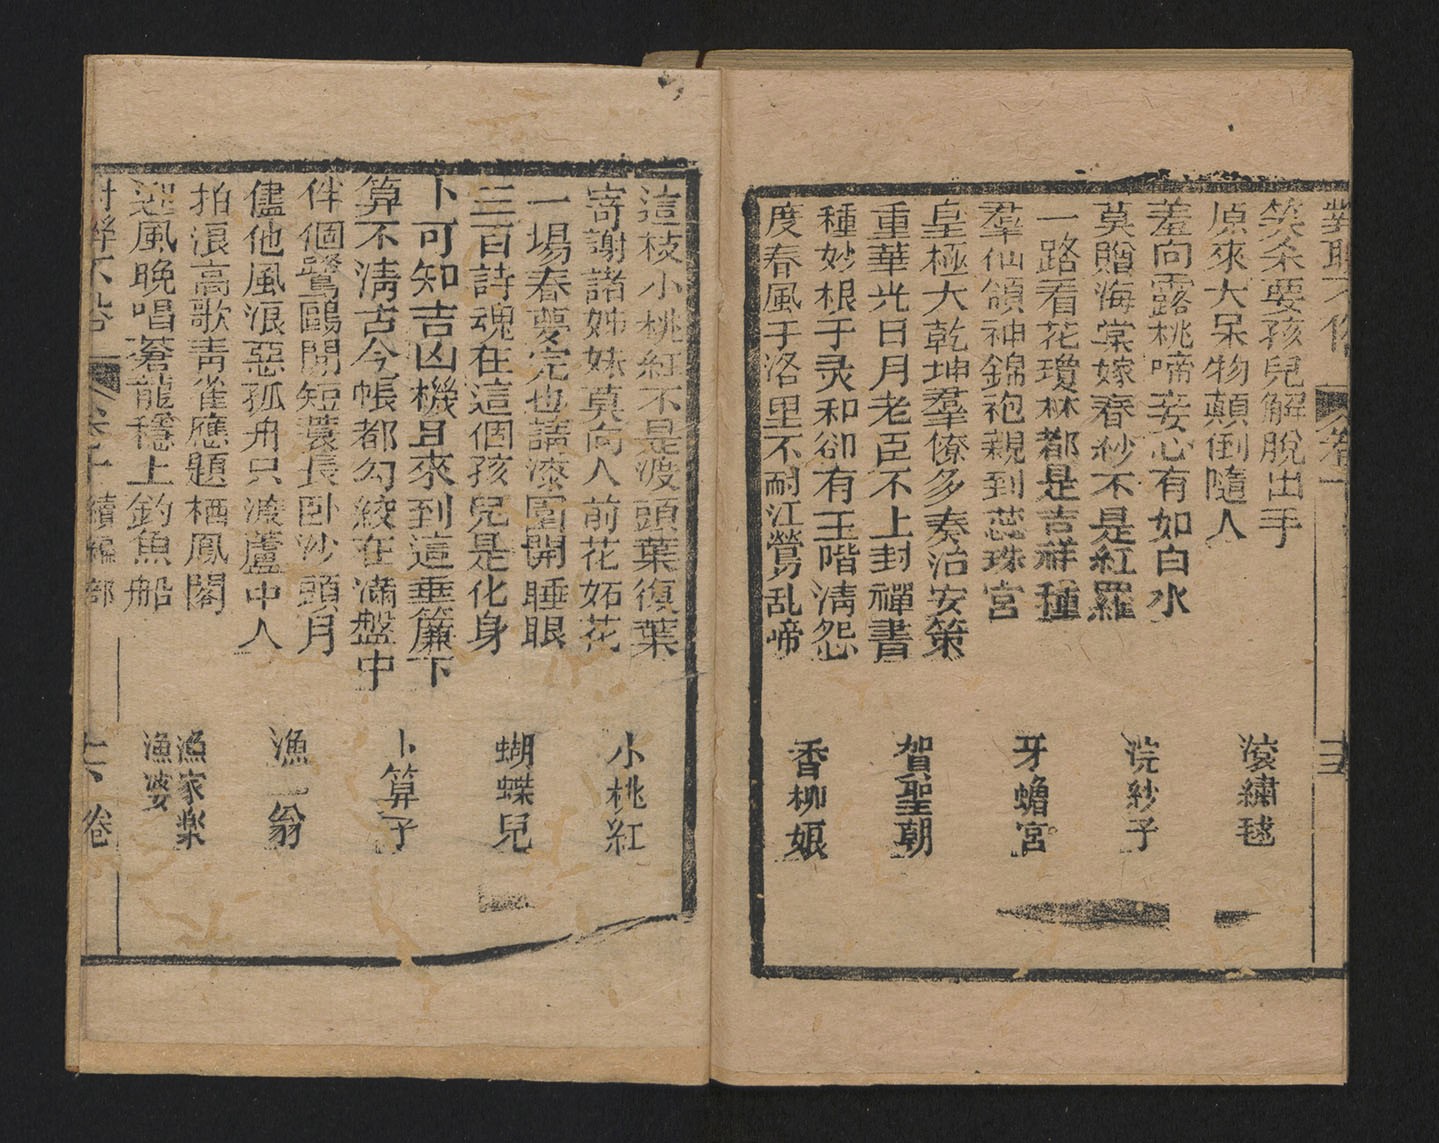 笑柔要孩兒解脫出手
原來大呆物顛倒隨人
滾繡毬
羞向露桃啼妾心有如白水
莫贈海棠嫁春紗不是紅羅
浣紗子
一路看花瓊林都是吉祥種
羣仙領神錦袍親到蕊珠宮
牙蟾宮
皇極大乾坤羣僚多奏治安策
重華光日月老臣不上封禪書
賀聖朝
種妙根于灵和卻有玉階淸怨
度春風于洛里不耐江鶯乱啼
香柳娘
這枝小桃紅不是渡頭葉復葉
寄謝諸姊妹莫向人前花妬花
小桃紅
一場春夢完也請漆園開睡眼
三百詩魂在這個孩兒是化身
蝴蝶兒
卜可知吉凶機且來到這垂簾下
算不淸古今帳都勾絞在滿盤中
卜算子
伴個鷺鷗閒短蓑長卧沙頭月
儘他風浪惡孤舟只漾蘆中人
漁翁
拍浪高歌靑雀應題栖鳳閣
迎風晚唱蒼龍穩上釣魚船
漁家樂
漁婆
續編 部
卷